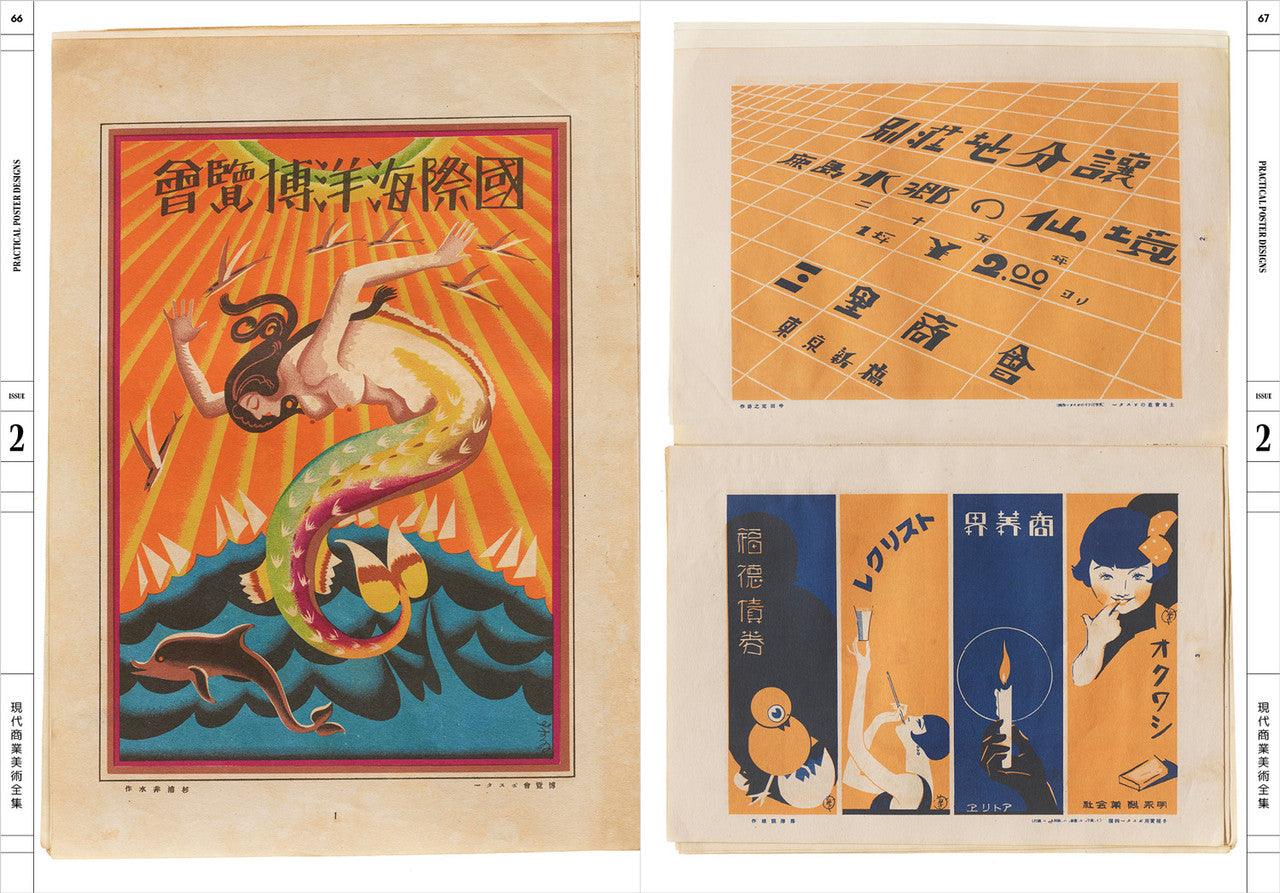 66
PRACTICAL POSTER DESIGNS
ISSUE
2
現代商業美術全集
國際海洋博覽會
博覽會ポスター
杉浦非水作
1
67
PRACTICAL POSTER DESIGNS
ISSUE
2
現代商業美術全集
別荘地分譲
鹿島水郷の仙境
二十万坪
1坪 2.00 ヨリ
商會
東京新橋
土地會社のポスター
2
福德債券
レクリスト
商業界
アトリヱ
オクワシ
製菓会社
3